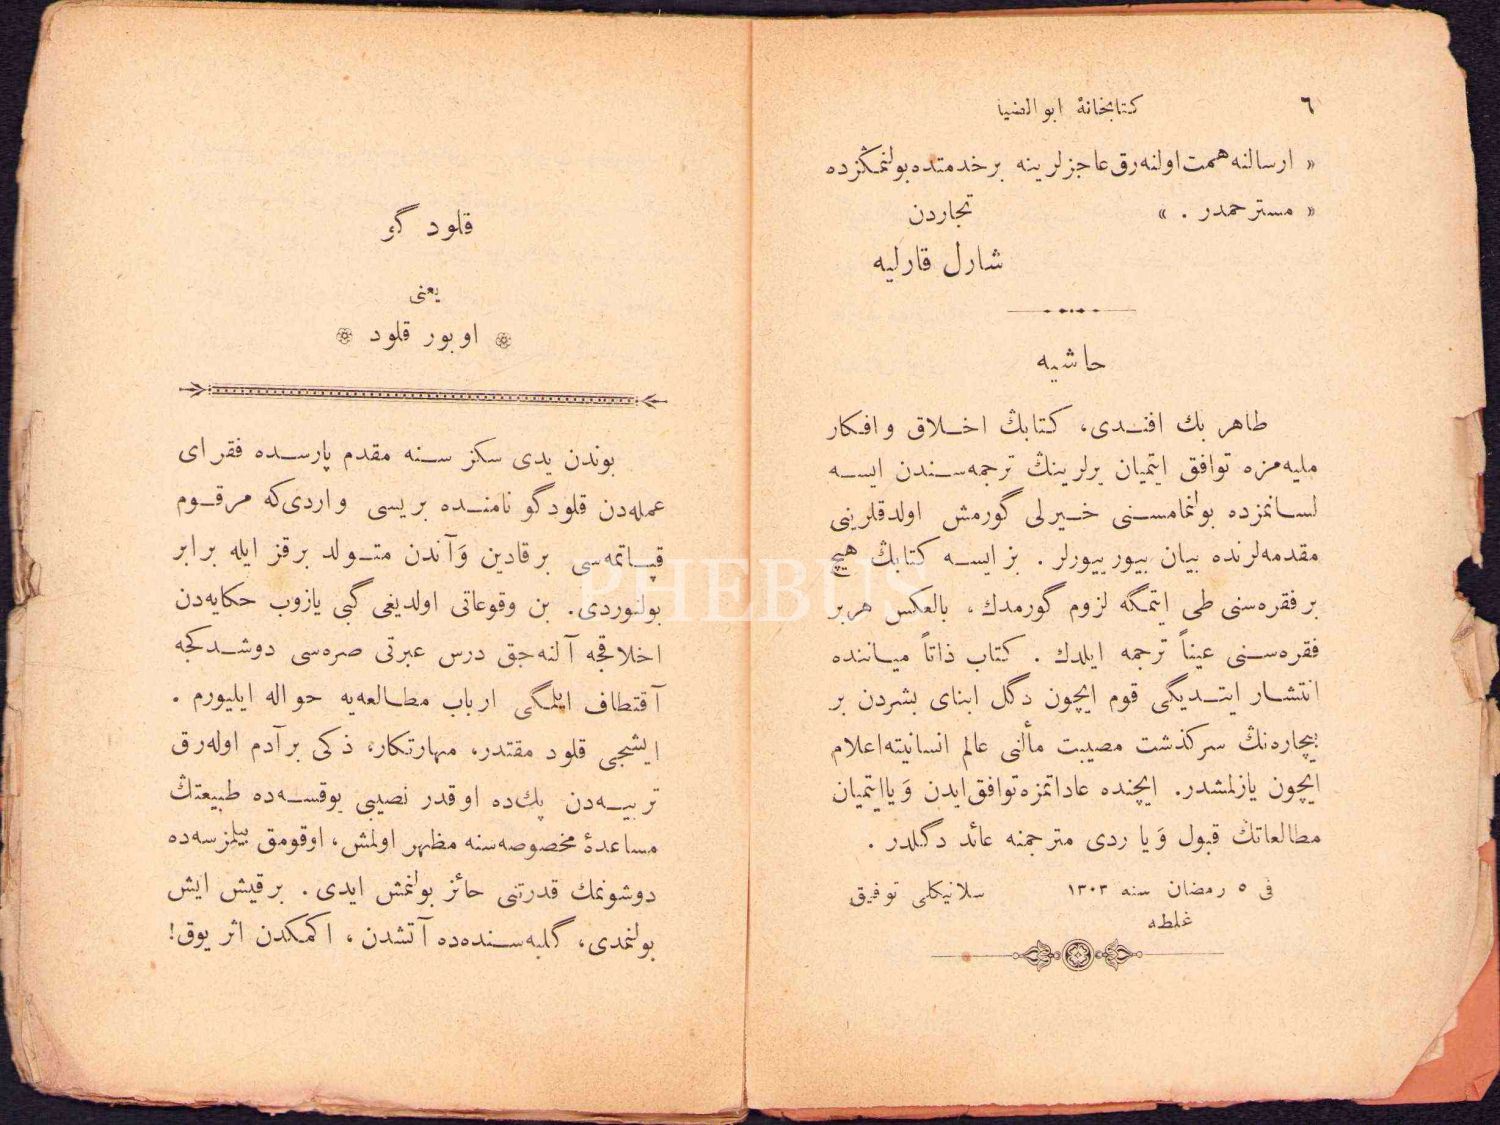 ٦
كتابخانهٔ ابو الضيا
« ارسالنه همت اولنه‌رق عاجزلرينه بر خدمتده بولنمكزده
« مسترحمدر . » تجاردن
شارل قارليه
حاشيه
طاهر بك افندى، كتابڭ اخلاق و افكار
مليه‌مزه توافق ايتميان يرلرينڭ ترجمه‌سندن ايسه
لسانمزده بولنمامسنى خيرلى گورمش اولدقلرينى
مقدمه‌لرنده بيان بيوريورلر . بز ايسه كتابڭ هيچ
بر فقره‌سنى طى ايتمگه لزوم گورمدك ، بالعكس هر بر
فقره‌سنى عيناً ترجمه ايلدك . كتاب ذاتاً مياننده
انتشار ايتديگى قوم ايچون دگل ابناى بشردن بر
بيچاره‌نڭ سركذشت مصيبت مألنى عالم انسانيته اعلام
ايچون يازلمشدر. ايچنده عاداتمزه توافق ايدن وَيا ايتميان
مطالعاتڭ قبول وَيا ردى مترجمنه عائد دگلدر .
فى ٥ رمضان سنه ١٣٠٣ سلانيكلى توفيق
غلطه
قلود گو
يعنى
اوبور قلود
بوندن يدى سكز سنه مقدم پارسده فقراى
عمله‌دن قلود گو نامنده بريسى واردى كه مرقوم
قپاتمه‌سى بر قادين وَ آندن متولد بر قز ايله برابر
بولنوردى. بن وقوعاتى اولديغى گبى يازوب حكايه‌دن
اخلاقجه آلنه‌جق درس عبرتى صره‌سى دوشدكجه
آقتطاف ايلگى ارباب مطالعه‌يه حواله ايليورم .
ايشجى قلود مقتدر، مهارتكار، ذكى بر آدم اوله‌رق
تربيه‌دن پك ده اوقدر نصيبى يوقسه‌ده طبيعتڭ
مساعدهٔ مخصوصه‌سنه مظهر اولمش، اوقومق بيلمزسه‌ده
دوشونمك قدرتنى حائز بولنمش ايدى . بر قيش ايش
بولنمدى، گلبه‌سنده‌ده آتشدن ، اكمكدن اثر يوق!
PHEBUS